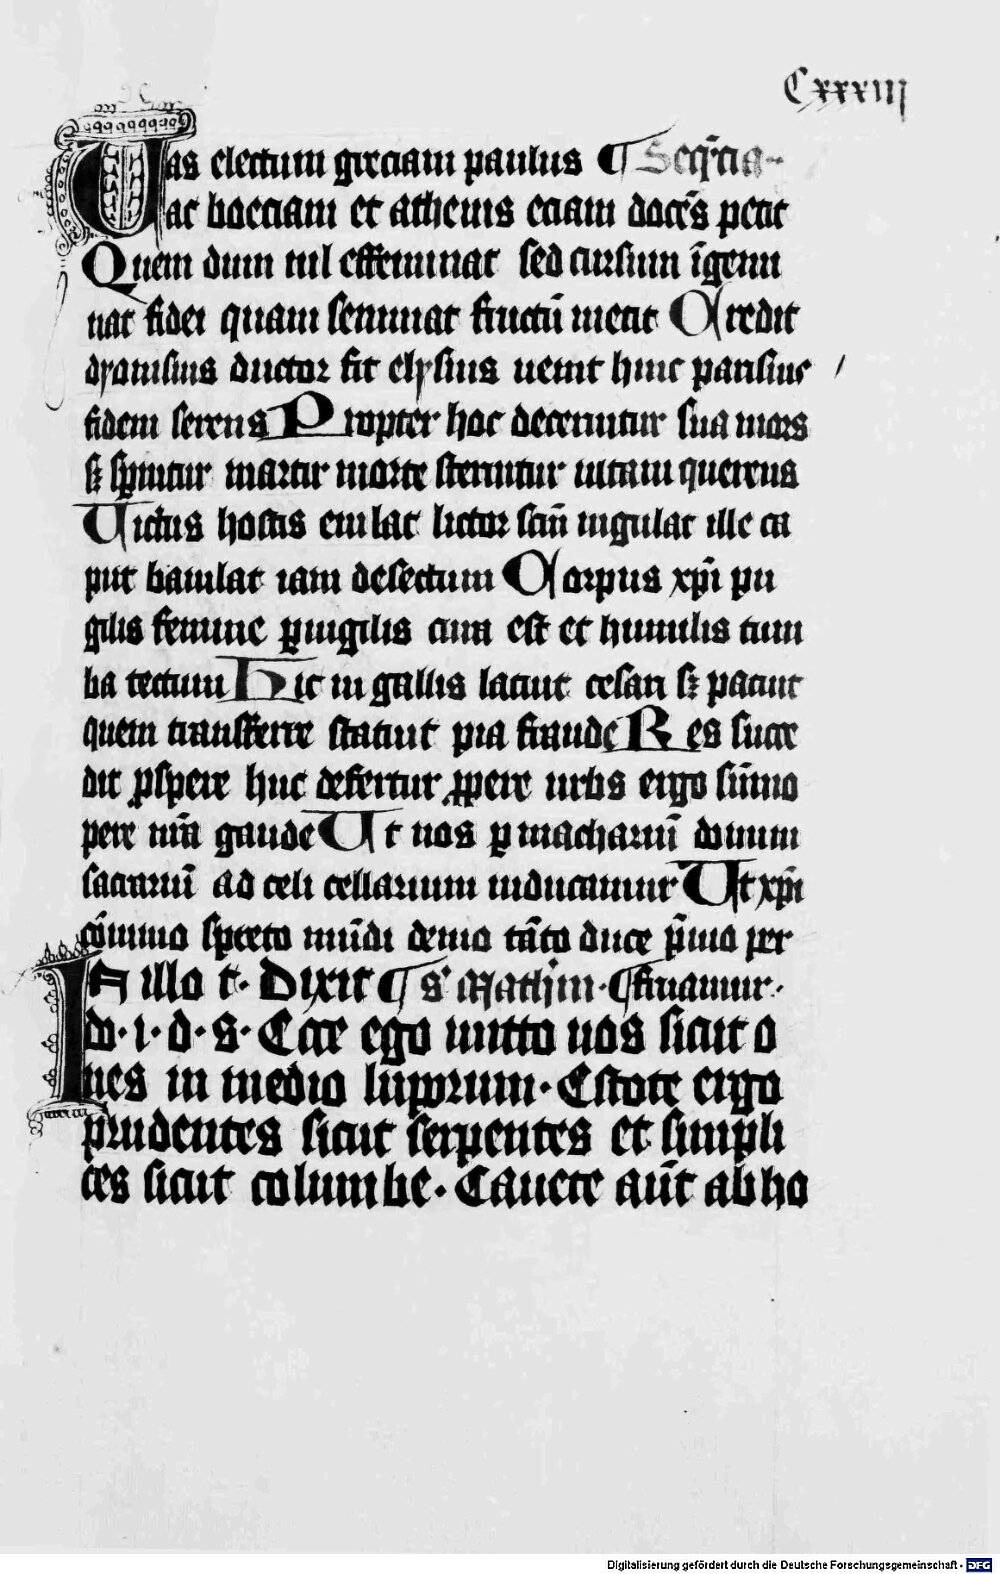 Cxxxiij
Uas electum greciam paulus ¶ Seq̄cia
ac boeciam et athenis eciam docēs petit
Quem dum nil effeminat sed cursum īgemi
nat fidei quam seminat fructū metit Credit
dyonisius ductor fit elysius uenit hinc parisius
fidem serens Propter hoc decernitur sua mors
sʒ spͥnitur martir morte sternitur uitam querens
Uictus hostis eiulat lictor scīm iugulat ille ca
put baiulat iam desectum Corpus xp̄i pu
gilis femine ꝑuigilis cura est et humilis tum
ba tectum Hic in gallis latuit cesari sʒ patuit
quem transferre statuit pia fraude Res succe
dit ꝓspere huc defertur ꝓpere urbs ergo sūmo
pere nr̄a gaude Ut nos ꝑ macharium domini
sacrariū ad celi cellarium inducamur Ut xp̄i
cōminio spreto mūdi demio tāto duce p̄mio per
IN illo t. Dixit ¶ sͦ Mathm̄. ¶ fruamur.
do. i. d. s. Ecce ego mitto uos sicut o
ues in medio luporum. Estote ergo
prudentes sicut serpentes et simpli
ces sicut columbe. Cauete aūt ab ho
Digitalisierung gefördert durch die Deutsche Forschungsgemeinschaft - DFG